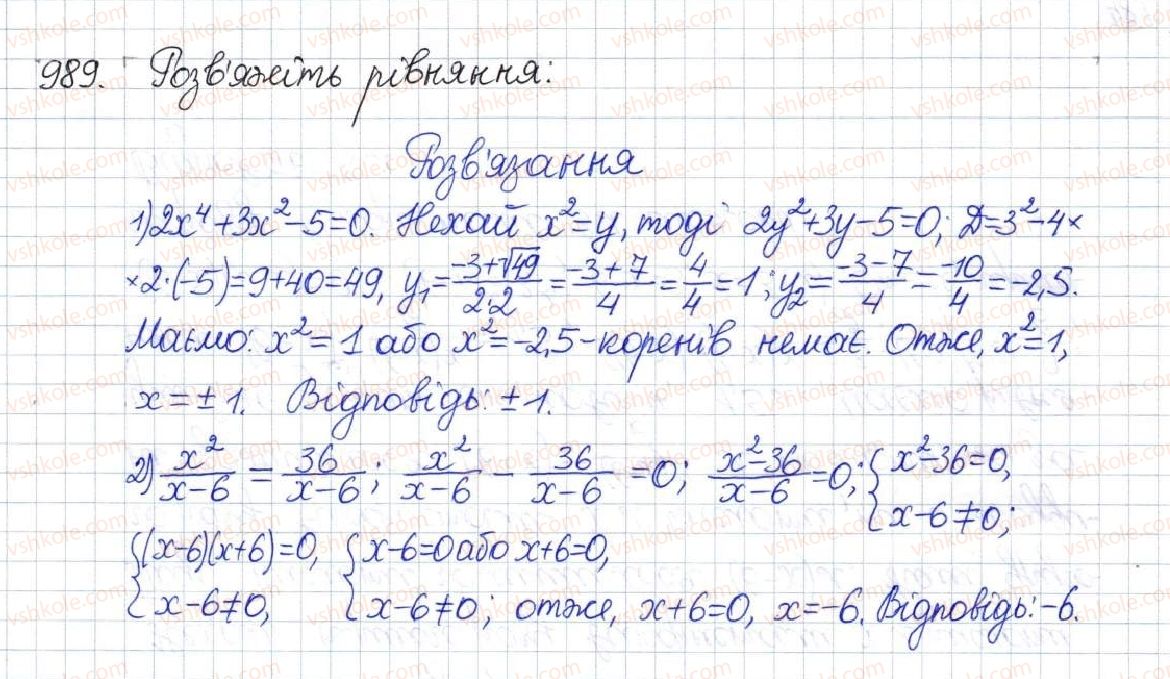 989. Розв'яжіть рівняння:
Розв'язання
1) 2x⁴+3x²-5=0. Нехай x²=y, тоді 2y²+3y-5=0; D=3²-4×
×2·(-5)=9+40=49, y₁=(-3+√49)/(2·2)=(-3+7)/4=4/4=1; y₂=(-3-7)/4=-10/4=-2,5.
Маємо: x²=1 або x²=-2,5-коренів немає. Отже, x²=1,
x=±1. Відповідь: ±1.
2) x²/(x-6)=36/(x-6); x²/(x-6)-36/(x-6)=0; (x²-36)/(x-6)=0; { x²-36=0, x-6≠0;
{ (x-6)(x+6)=0, x-6≠0, { x-6=0 або x+6=0, x-6≠0; отже, x+6=0, x=-6. Відповідь: -6.